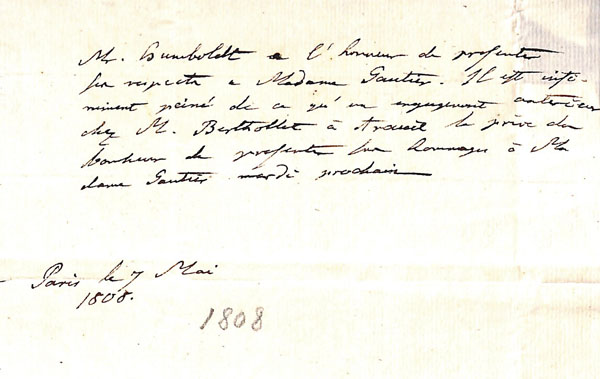 Mr. Humboldt a l'honneur de presenter
ses respects a Madame Gautier. Il est infi-
niment peiné de ce qu'un engagement anterieur
chez M. Berthollet à Arcueil le prive du
bonheur de presenter ses hommages à Ma
dame Gautier mardi prochain
Paris le 7 Mai
1808.
1808